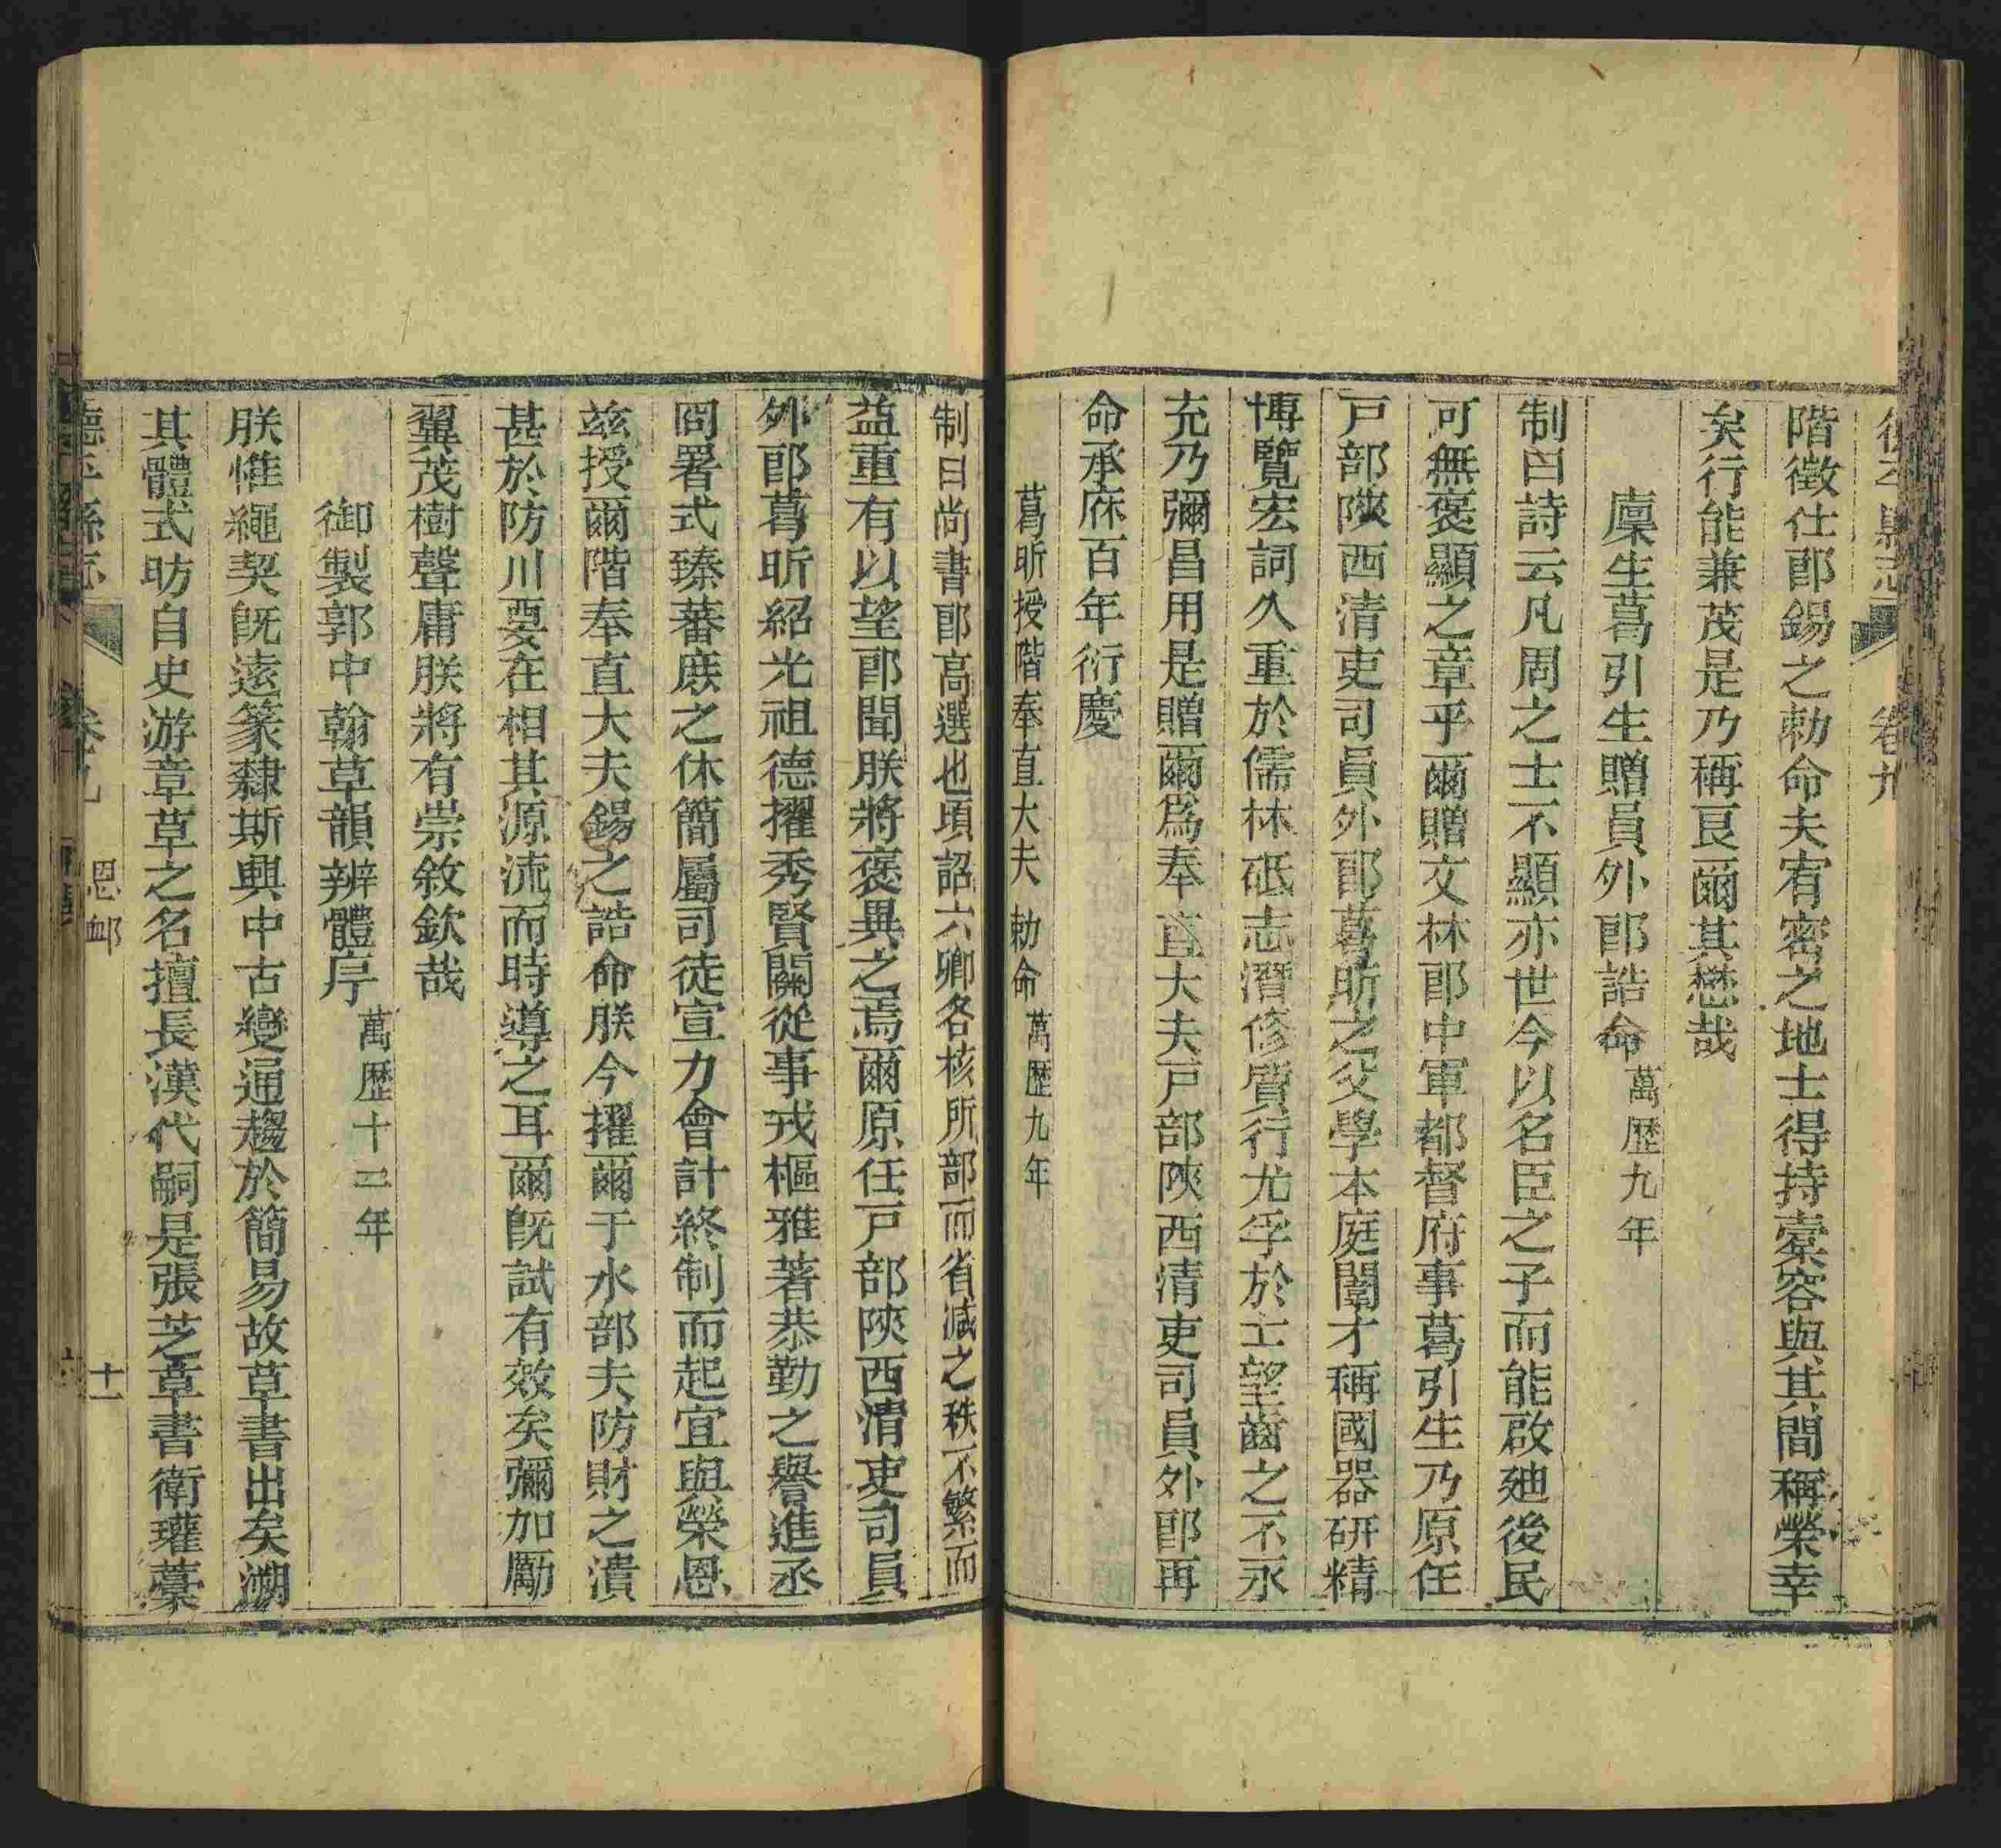 德平縣志 卷九
階徵仕郎錫之勑命夫宥密之地士得持橐容與其間稱榮幸
矣行能兼茂是乃稱良爾其懋哉
廩生葛引生贈員外郎誥命萬歷九年
制曰詩云凡周之士不顯亦世今以名臣之子而能啟廸後民
可無褒顯之章乎爾贈文林郎中軍都督府事葛引生乃原任
戸部陝西清吏司員外郎葛昕之父學本庭闈才稱國器研精
博覽宏詞久重於儒林砥志潛修質行尤孚於士望齒之不永
充乃彌昌用是贈爾爲奉直大夫戸部陝西清吏司員外郎再
命承庥百年衍慶
葛昕授階奉直大夫勑命萬歷九年
制曰尚書郎高選也頃詔六卿各核所部而省減之秩不繁而
益重有以望郎聞朕將褒異之焉爾原任戸部陝西清吏司員
外郎葛昕紹光祖德擢秀賢關從事戎樞雅著恭勤之譽進丞
冏署式臻蕃庶之休簡屬司徒宣力會計終制而起宜與榮恩
兹授爾階奉直大夫錫之誥命朕今擢爾于水部夫防財之潰
甚於防川要在相其源流而時導之耳爾旣試有效矣彌加勵
翼茂樹聲庸朕將有崇敘欽哉
御製郭中翰草韻辨體序萬歷十二年
朕惟繩契旣遠篆隸斯興中古變通趨於簡易故草書出矣溯
其體式昉自史游章草之名擅長漢代嗣是張芝章書衛瓘藁
德平縣志 卷九 恩卹 十一